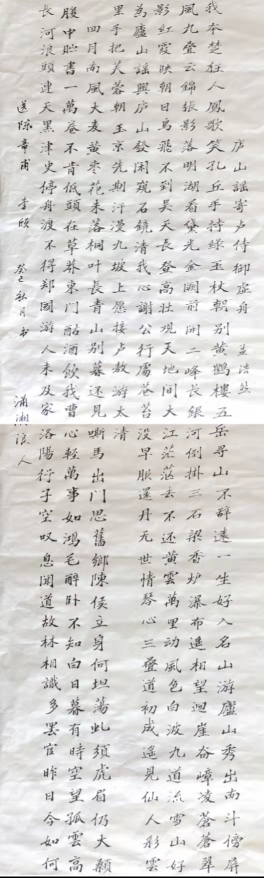 庐山謠寄卢侍御虚舟 孟浩然
我本楚狂人鳳歌笑孔丘手持绿玉杖朝别黄鹤樓五岳尋山不辞遠一生好入名山游廬山秀出南斗傍屏
風九叠云錦張影落明湖青黛光金闕前開二峰長銀河倒掛三石梁香炉瀑布遥相望迴崖沓嶂凌蒼蒼翠
影紅霞映朝日鳥飛不到吴天長登高壮观天地间大江茫茫去不还黄雲萬里动風色白波九道流雪山好
為廬山謠興庐山發闲窥石鏡清我心謝公行處蒼苔没早服還丹无世情琴心三叠道初成遥見仙人彩雲
里手把芙蓉朝玉京先期汗漫九垓上愿接卢敖游太清
四月南風大麦黄枣花未落桐叶長青山别暮还見嘶馬出門思舊鄉陳侯立身何坦荡虬須虎眉仍大顙
腹中贮書一萬卷不肯低頭在草莽東門酤酒飲我曹心輕萬事如鸿毛醉卧不知白日暮有時空望孤雲高
長河浪頭連天黑津吏停舟渡不得郑國游人未及家洛陽行子空叹息闻道故林相識多罢官昨日今如何
送陈章甫 李颀 癸巳秋月书 瀟湘浪人